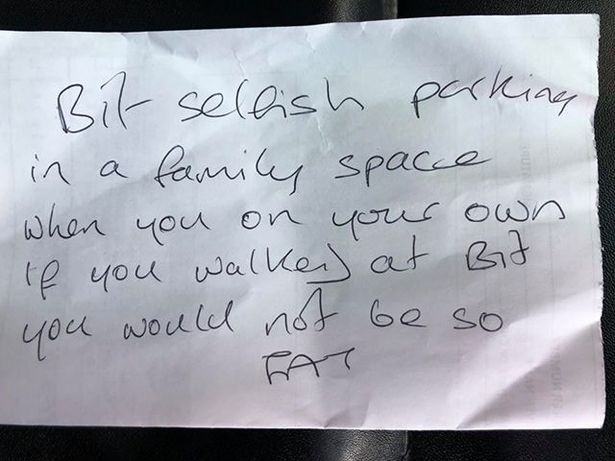 Bit selfish parking
in a family space
when you on your own
if you walked at Bit
you would not be so
FAT